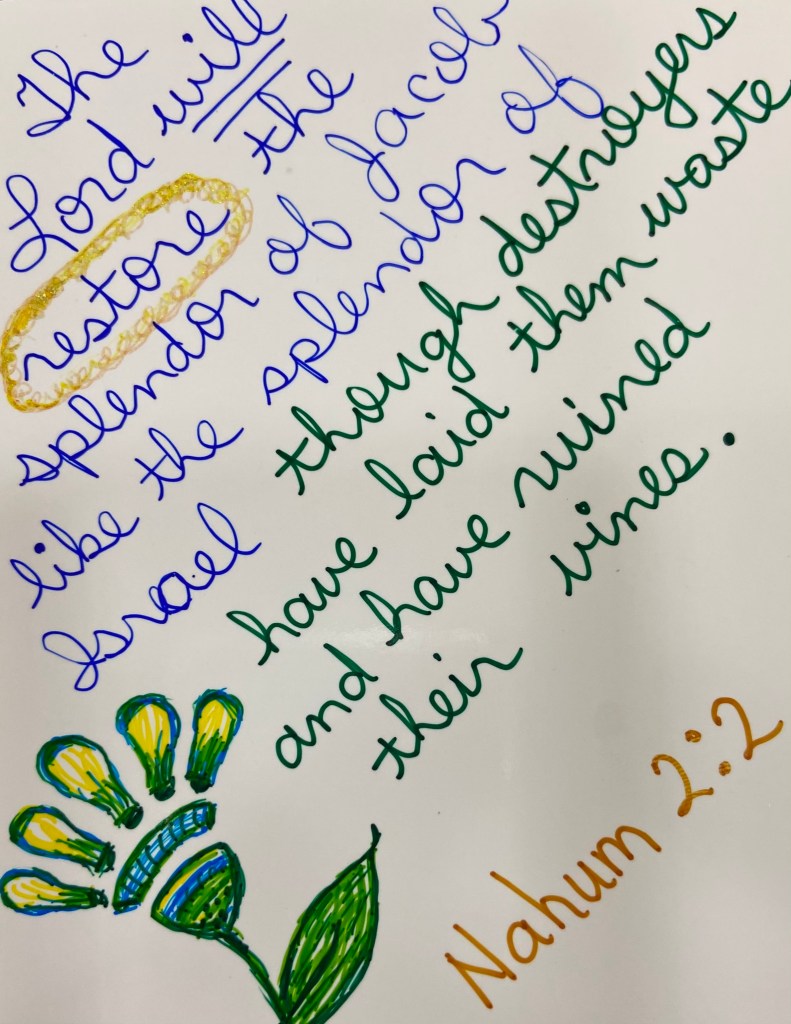 The
Lord will
restore the
splendor of Jacob
like the splendor of
Israel though destroyers
have laid them waste
and have ruined
their vines.
Nahum 2:2